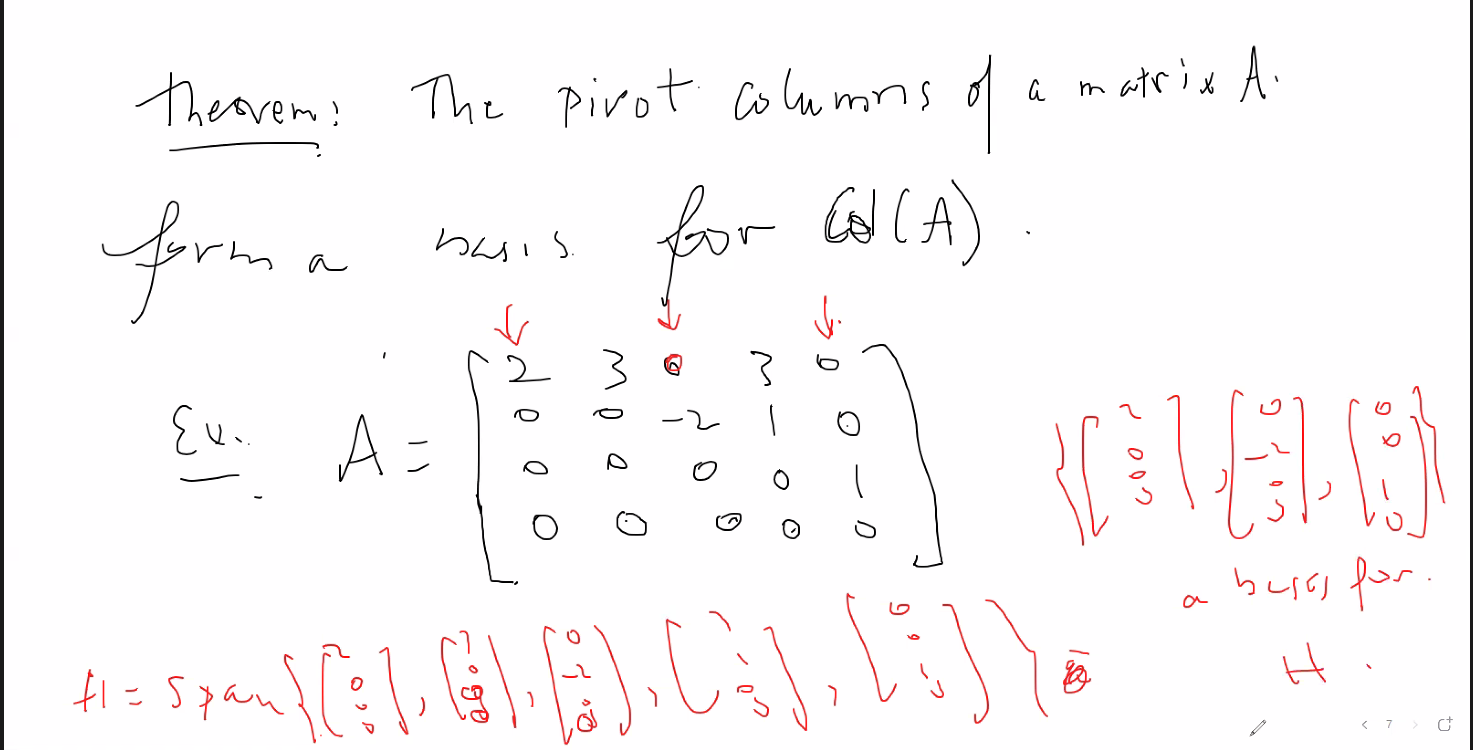 Theorem: The pivot columns of a matrix A.
form a basis for Col(A).
Ex. A = [2 3 0 3 0
0 0 -2 1 0
0 0 0 0 1
0 0 0 0 0]
{[2 0 0 0], [0 -2 0 0], [0 0 1 0]}
a basis for.
H.
H = Span {[2 0 0 0], [3 0 0 0], [0 -2 0 0], [3 1 0 0], [0 0 1 0]}
7